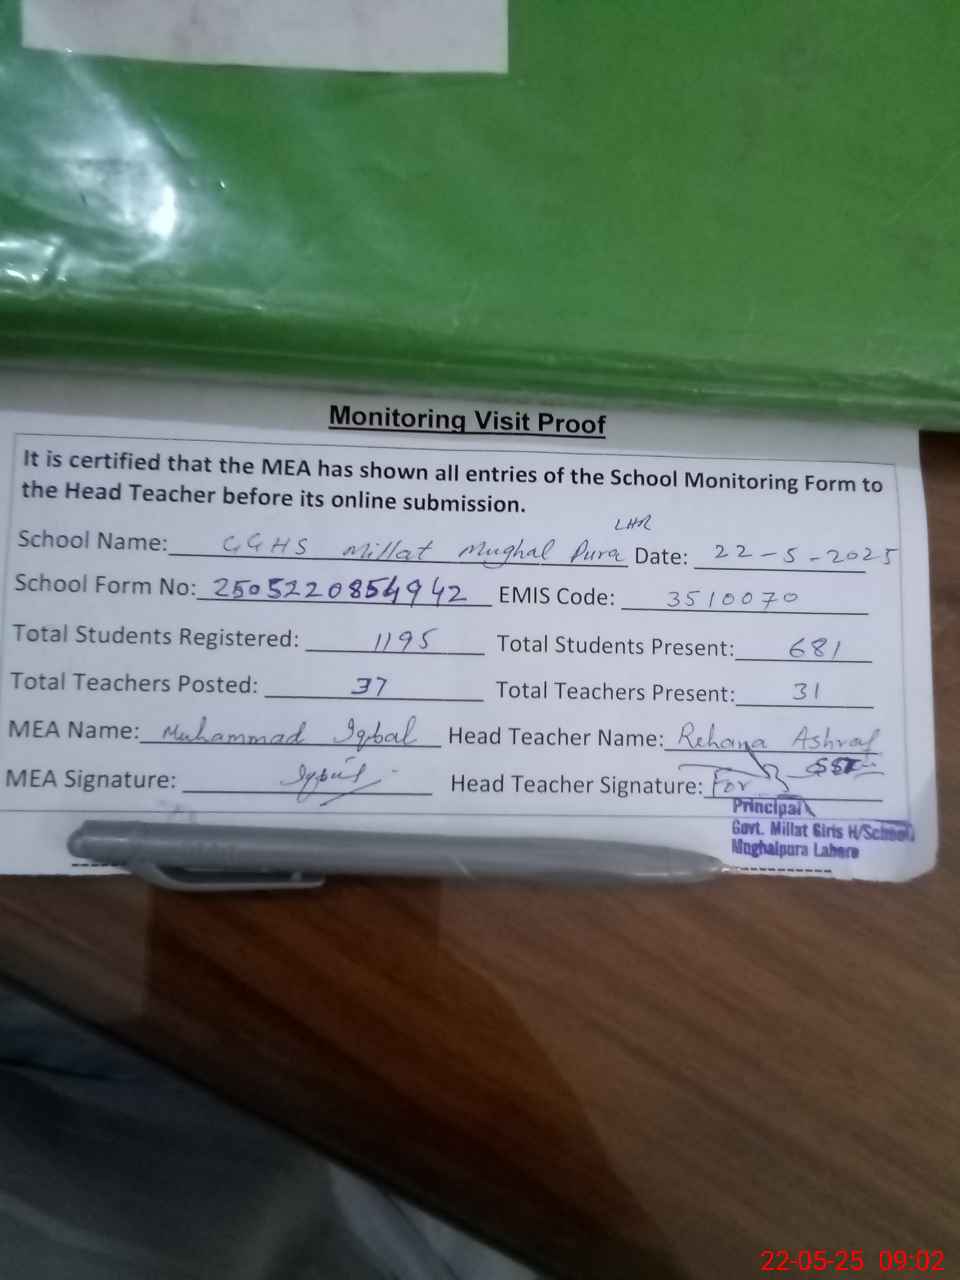 Monitoring Visit Proof
It is certified that the MEA has shown all entries of the School Monitoring Form to
the Head Teacher before its online submission.
LHR
School Name: GGHS Millat Mughal Pura Date: 22-5-2025
School Form No: 2505220854942 EMIS Code: 3510070
Total Students Registered: 1195 Total Students Present: 681
Total Teachers Posted: 37 Total Teachers Present: 31
MEA Name: Muhammad Iqbal Head Teacher Name: Rehana Ashraf
SST
MEA Signature: Iqbal Head Teacher Signature: For
Principal
Govt. Millat Girls H/School
Mughalpura Lahore
22-05-25 09:02